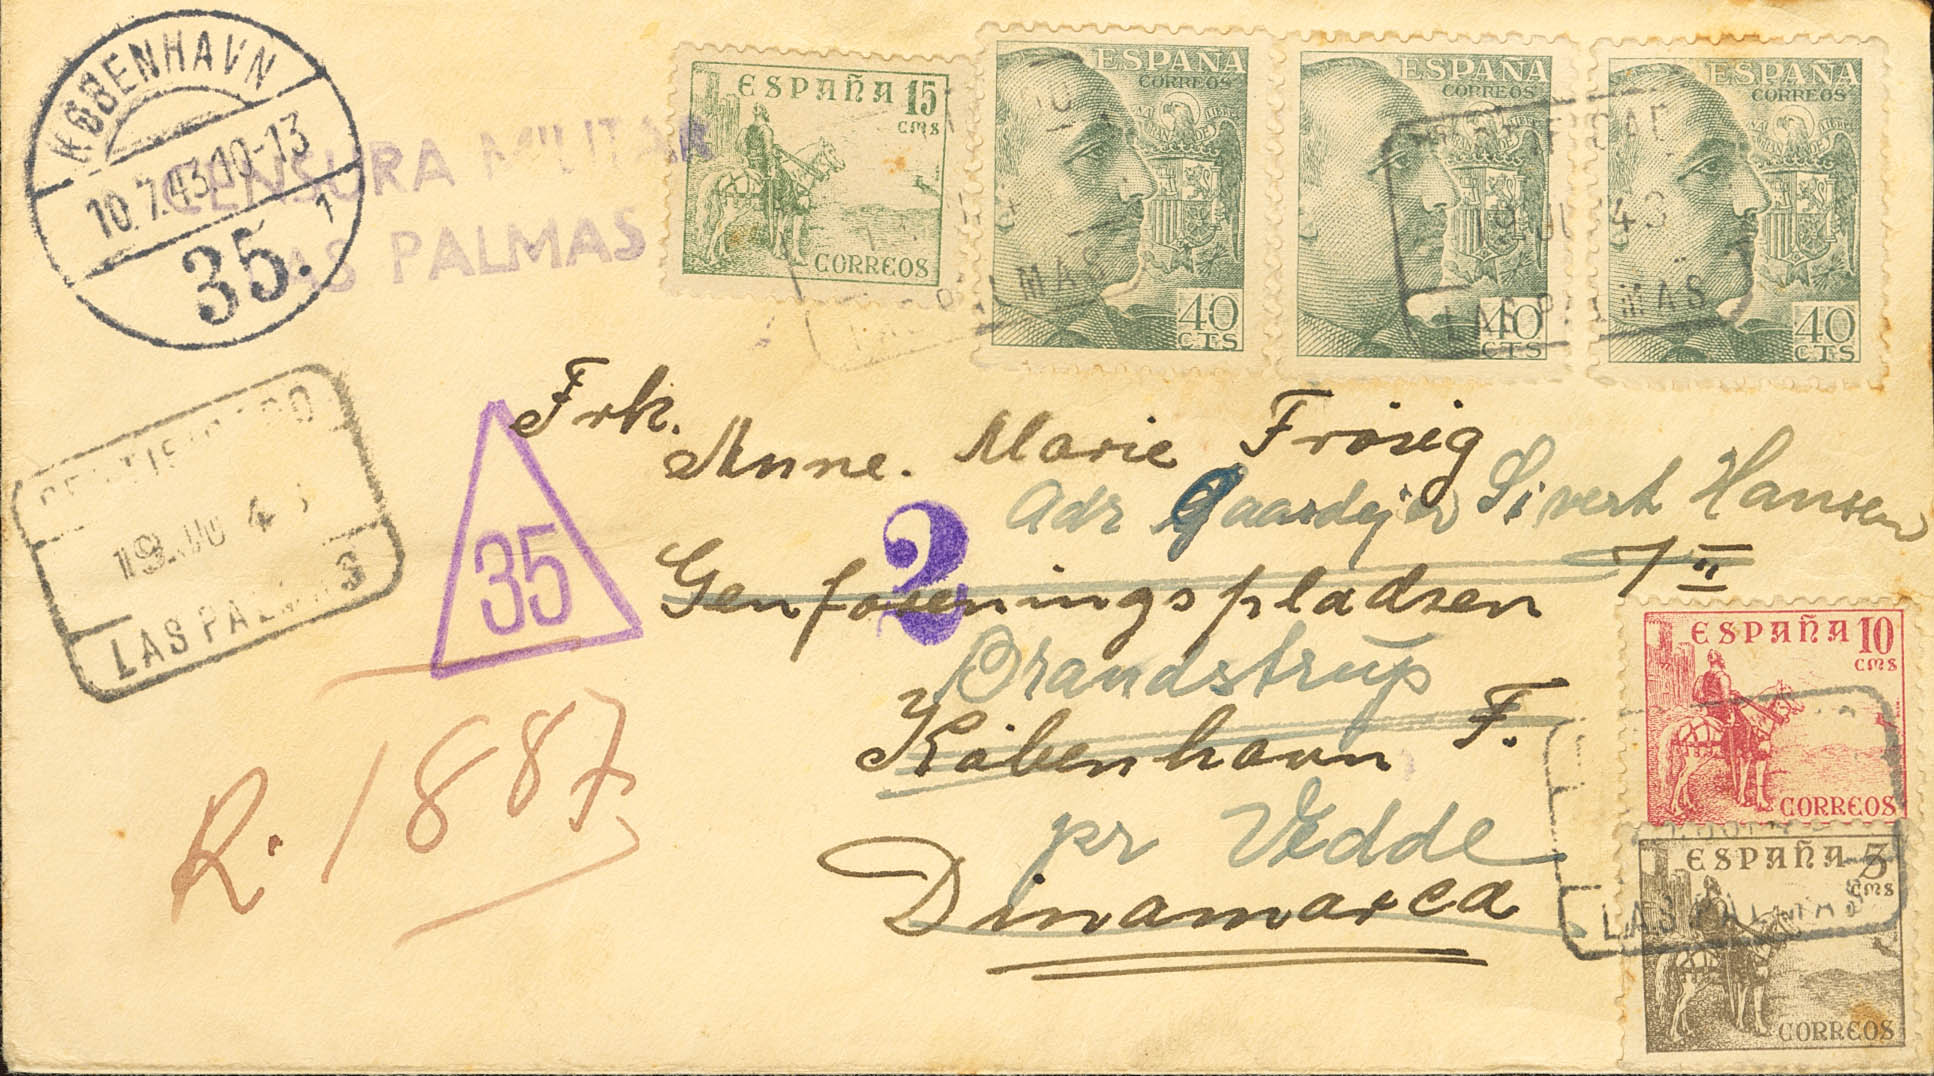 KØBENHAVN
10.7.43.10-13
35. 1
CENSURA MILITAR
LAS PALMAS
ESPAÑA 15
CMS
CORREOS
ESPAÑA
CORREOS
40
CTS
ESPAÑA
CORREOS
40
CTS
ESPAÑA
CORREOS
40
CTS
LAS PALMAS
CERTIFICADO
19 JU 43
LAS PALMAS
35
2
Frk.
Anne. Marie Frösig
Adr Gaardejer Sivert Hansen
Genforeningspladsen 7 II
Brandstrup
Köbenhavn F.
pr Vedde
Dinamarca
R. 1887
ESPAÑA 10
CMS
CORREOS
ESPAÑA 5
CMS
CORREOS
LAS PALMAS